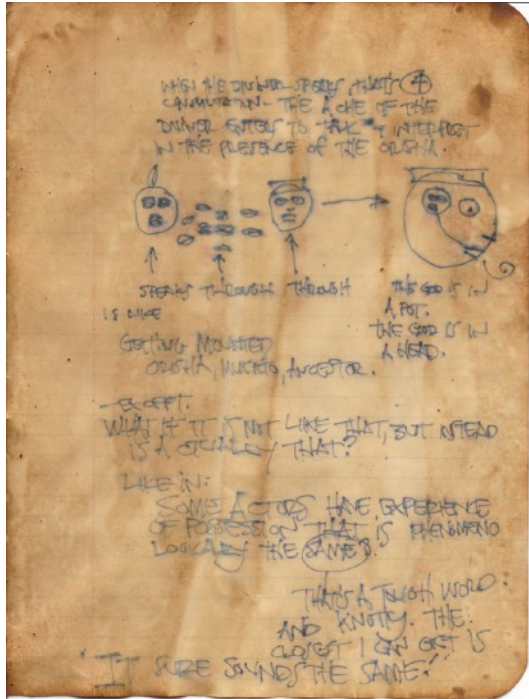 WHEN THE DIVINER SPEAKS, THAT'S 4
CANMUTATION - THE ACHE OF THE
DIVINER ENTERS TO TALK & INTERPRET
IN THE PRESENCE OF THE ORISHA.
SPEAKS THROUGH THROUGH
THE GOD IS IN
A POT.
THE GOD IS IN
A HEAD.
IS LIKE
GETTING MOUNTED
ORISHA, ANCESTOR.
- EXCEPT.
WHAT IF IT IS NOT LIKE THAT, BUT INSTEAD
IS ACTUALLY THAT?
LIKE IN:
SOME ACTORS HAVE EXPERIENCE
OF POSSESSION THAT IS PHENOMENO
LOGICALLY THE SAME?
THAT'S A TOUGH WORD.
AND KNOTTY. THE
CLOSEST I CAN GET IS
"IT SURE SOUNDS THE SAME."